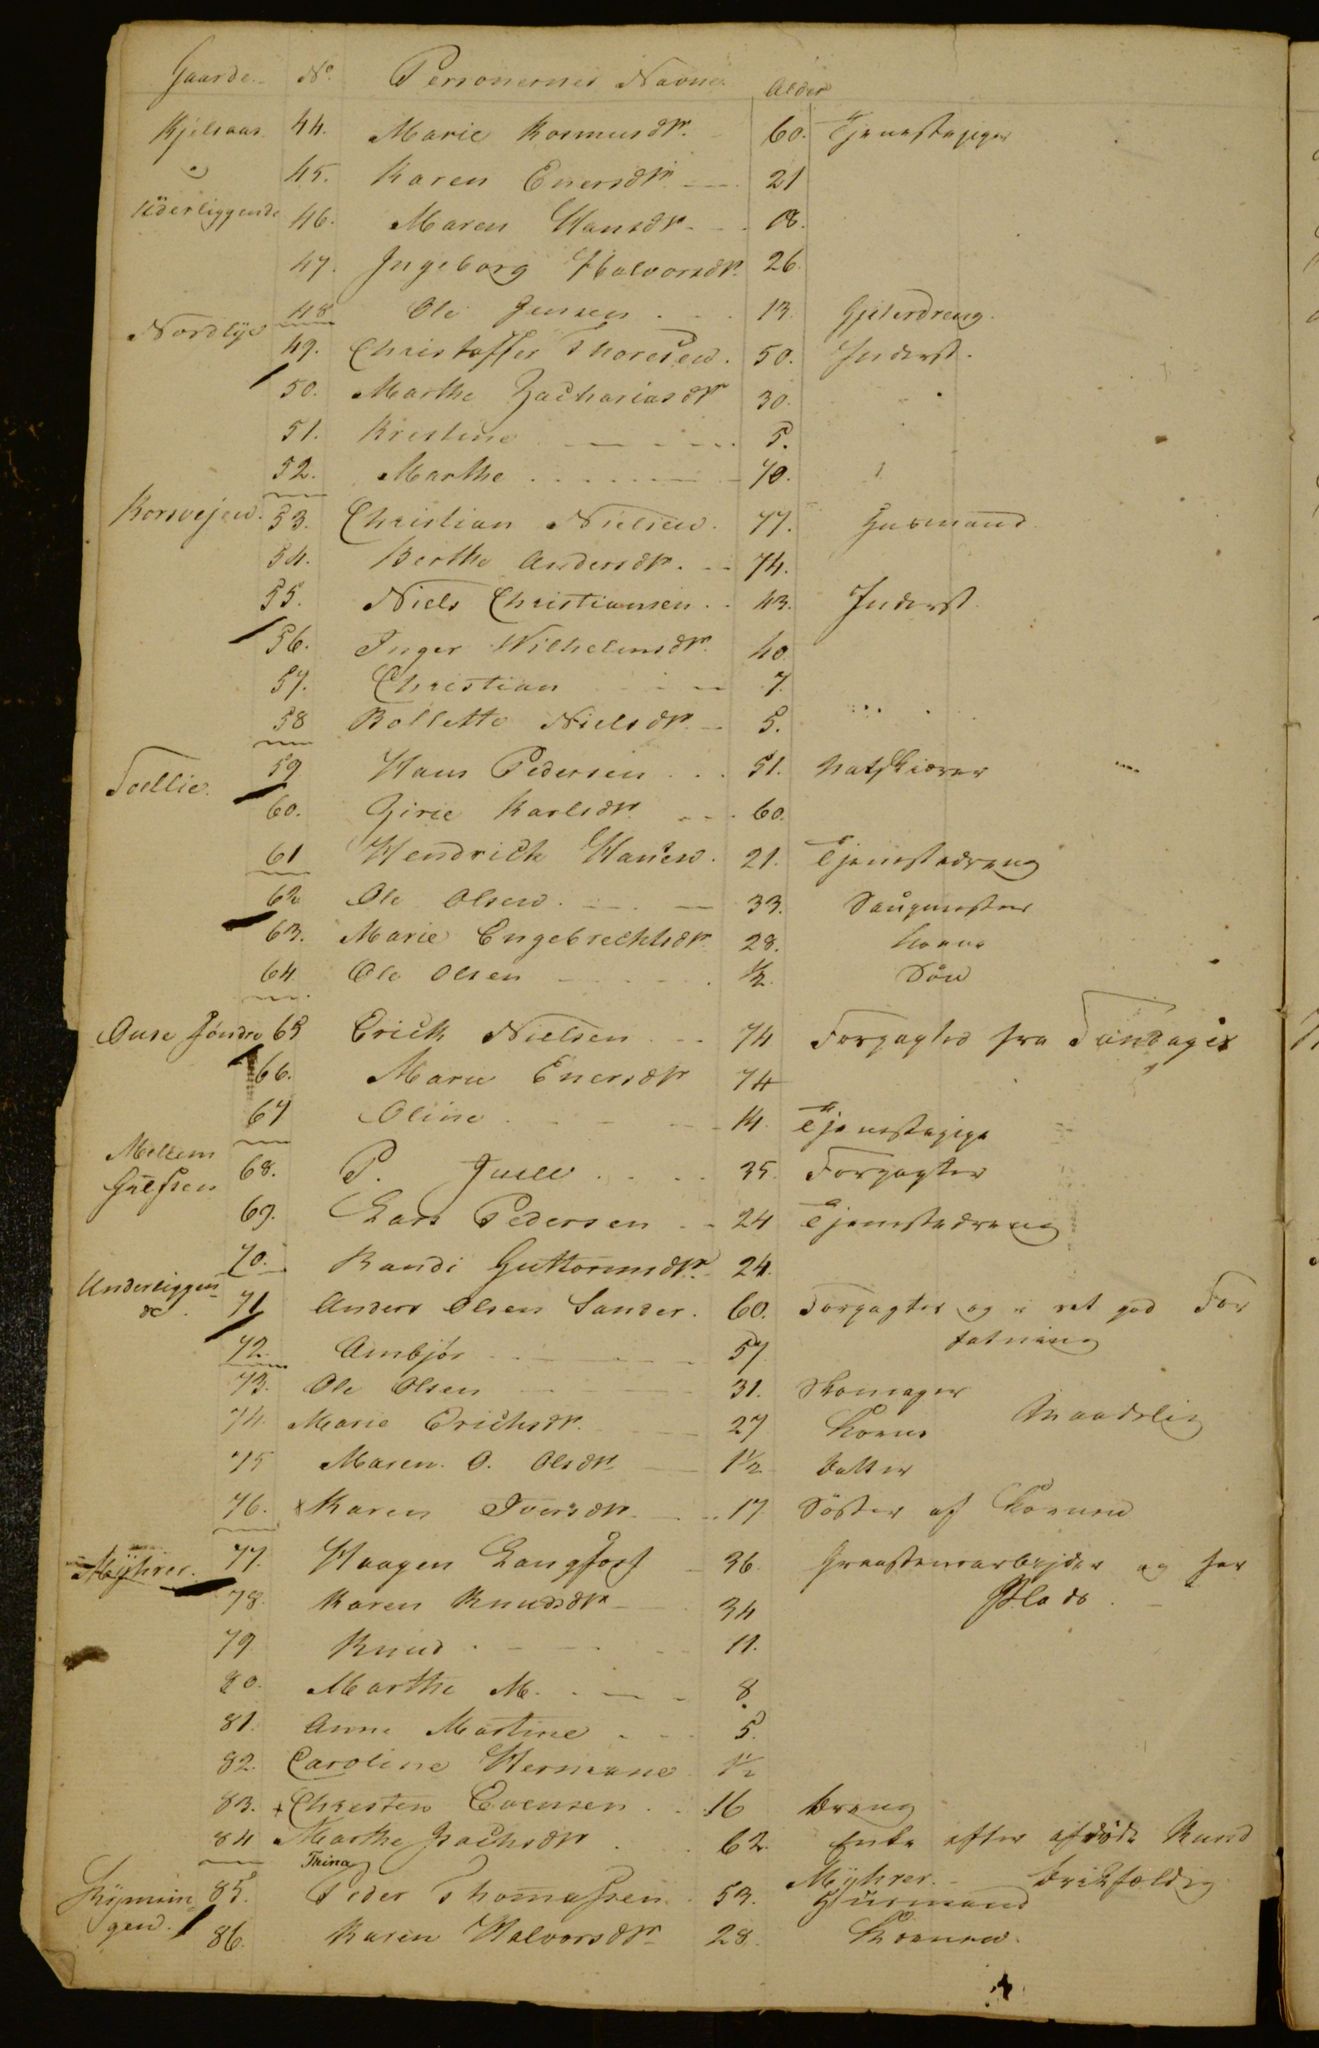 Gaarde No. Personernes Navne. Alder
Kjelsaas 44. Marie Rasmusdtr. 60. Tjenestepiger
45. Karen Enersdtr. 21
Uderliggende 46. Maren Hansdtr. 18.
47. Ingeborg Halvorsdtr. 26.
48 Ole Jensen 13. Gjeterdreng.
Nordlye 49. Christoffer Thoresen. 50. Inderst.
50. Marthe Zachariasdtr 30.
51. Kristine 5.
52. Marthe 70.
Korsvejen. 53. Christian Nielsen. 77. Husmand
54. Berthe Andersdtr. 74.
55. Niels Christiansen. 43. Inderst
56. Inger Wilhelmsdtr. 40.
57. Christian 7.
58 Bollette Nielsdtr. 5.
59 Hans Pedersen 51.
60. Girie Karlsdtr. 60.
61 Hendrich Hansen. 21. Tjenestedreng
62 Ole Olsen. 33. Saugmester
63. Marie Engebrechtsdtr. 28. Kone
64 Ole Olsen 1/2. Søn
Søndre 65 Erich Nielsen 74 Forpagter fra
66. Maren Enersdtr 74
67 Oline 14. Tjenestepige
Mellem 68. P. Juell 35. Forpagter
69. Lars Pedersen 24 Tjenestedreng
70. Randi Guttormsdtr. 24.
Underliggen-
de 71 Anders Olsen Sander. 60. Forpagter og i ret god For
fatning
72. Ambjør 57
73. Ole Olsen 31. Skomager
74. Marie Erichsdtr. 27 Kone Maadelig
75 Maren O. Olsdtr 1 1/2 Datter
76. × Karen Iversdtr. 17 Søster af Konen
Myhrer. 77. Haagen Langfos 36. Graastensarbejder og har
Plads.
78. Karen Knudsdtr 34
79 Knud 11.
80. Marthe M. 8.
81. Anne Martine 5.
82. Caroline Hermane 1 1/2
83. + Christen Evensen 16 Dreng
84 Marthe Zachsdtr 62 Enke efter afdøde Knud
Thina Myhrer.
85. Peder Thomassen 53. Husmand
gen. 86. Karen Halvorsdtr 28. Konen.